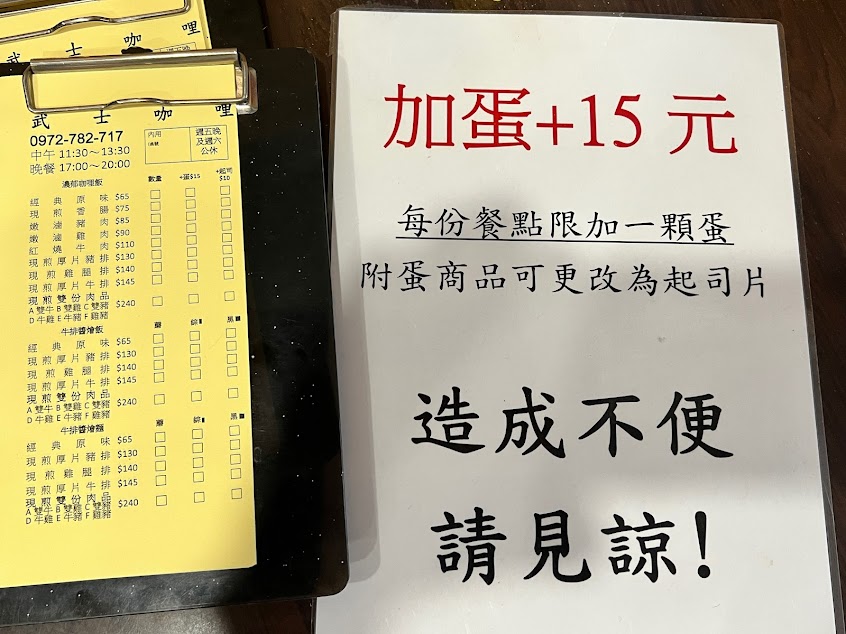 武士咖哩
武士咖哩
0972-782-717
中午 11:30～13:30
晚餐 17:00～20:00
內用
週五晚
及週六
公休
濃郁咖哩飯 數量 +蛋$15 +起司$10
經典原味 $65
現煎香腸 $75
嫩滷豬肉 $85
嫩滷雞肉 $90
紅燒牛肉 $110
現煎厚片豬排 $130
現煎雞腿排 $140
現煎厚片牛排 $145
現煎雙份肉品 $240
A 雙牛 B 雙雞 C 雙豬
D 牛雞 E 牛豬 F 雞豬
牛排醬燴飯
經典原味 $65
現煎厚片豬排 $130
現煎雞腿排 $140
現煎厚片牛排 $145
現煎雙份肉品 $240
A 雙牛 B 雙雞 C 雙豬
D 牛雞 E 牛豬 F 雞豬
牛排醬燴麵
經典原味 $65
現煎厚片豬排 $130
現煎雞腿排 $140
現煎厚片牛排 $145
現煎雙份肉品 $240
A 雙牛 B 雙雞 C 雙豬
D 牛雞 E 牛豬 F 雞豬
加蛋+15 元
每份餐點限加一顆蛋
附蛋商品可更改為起司片
造成不便
請見諒!